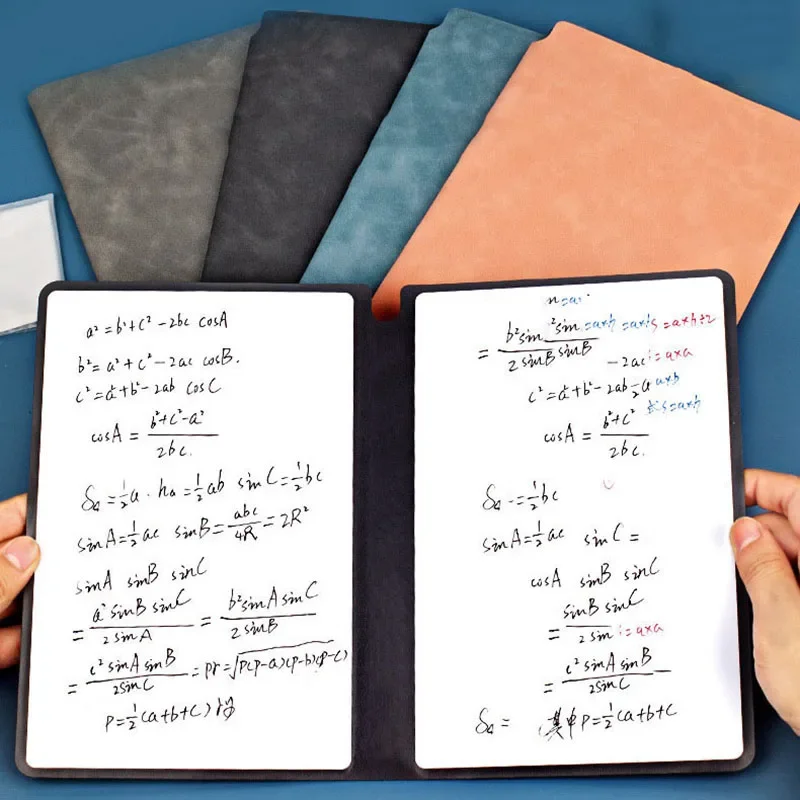 a² = b² + c² - 2bc cosA
b² = a² + c² - 2ac cosB.
c² = a² + b² - 2ab cosC
cosA = (b² + c² - a²) / 2bc.
S△ = ½a · ha = ½ab sinC = ½bc
sinA = ½ac sinB = abc / 4R = 2R²
sinA sinB sinC
= a² sinB sinC / 2sinA = b² sinA sinC / 2sinB
= c² sinA sinB / 2sinC = pr = √p(p-a)(p-b)(p-c)
P = ½(a+b+c)
n=a
= b² sin² sin / 2sinB sinB =a×h =a×h S=a×h÷2
-2ac =a×a
c² = a² + b² - 2ab ÷a a×b
cosA = b² + c² / 2bc. S=a×h
S△ = ½bc
sinA = ½ac sinC =
cosA sinB sinC
= sinB sinC / 2sin =a×a
= c² sinA sinB / 2sinC
S△ = 其中P = ½(a+b+c